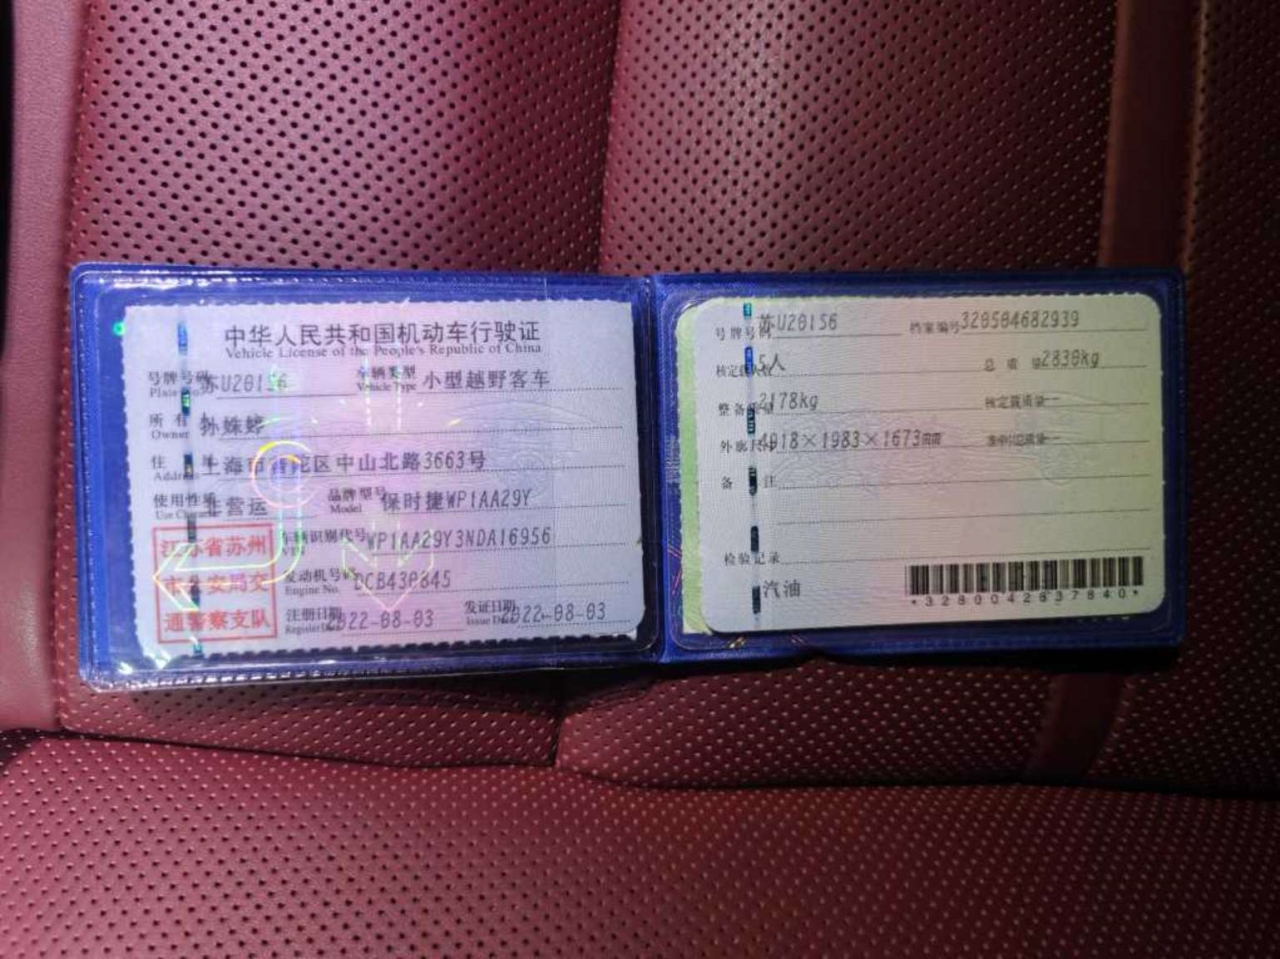 中华人民共和国机动车行驶证
Vehicle License of the People's Republic of China
号牌号码 苏U20156 车辆类型 小型越野客车
Plate No. Vehicle Type
所有人 孙姝婷
Owner
住址 上海市普陀区中山北路3663号
Address
使用性质 非营运 品牌型号 保时捷WP1AA29Y
Use Character Model
车辆识别代号 WP1AA29Y3NDA16956
VIN
发动机号码 DCB430845
Engine No.
注册日期 2022-08-03 发证日期 2022-08-03
Register Date Issue Date
江苏省苏州
市公安局交
通警察支队
号牌号码 苏U20156 档案编号 320504682939
核定载人数 5人 总质量 2830kg
整备质量 2178kg 核定载质量 --
外廓尺寸 4918×1983×1673mm 准牵引总质量 --
备注
检验记录
汽油
*3280042637840*